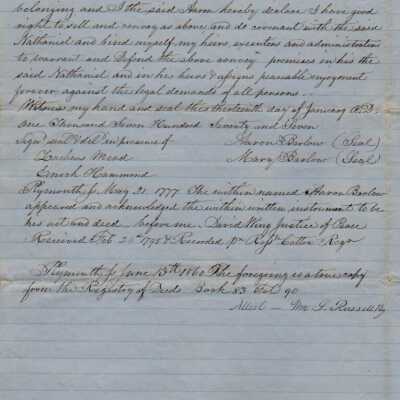 belonging and I the said Aaron hereby declare I have good
right to sell and convey as above and do covenant with the said
Nathaniel and bind myself, my heirs executors and administrators
to warrant and Defend the above convey premises in his the
said Nathaniel and in his heirs & assigns peaceable enjoyment
forever against the legal demands of all persons.
Witness my hand and seal this thirteenth day of January A.D.
one Thousand Seven Hundred Seventy and Seven
Sign seal & del in presence of Aaron Barlow (Seal)
Mead Mary Barlow (Seal)
Enoch Hammond
Plymouth ss May 21. 1777 The within named Aaron Barlow
appeared and acknowledged the within written instrument to be
his act and deed before me. David Wing Justice of Peace
Received Feb & Recorded pr Cotton Regr
Plymouth ss June 13th 1860 The foregoing is a true copy
from the Registry of Deeds Book 83 Fol 90
Attest — Wm S. Russell Reg